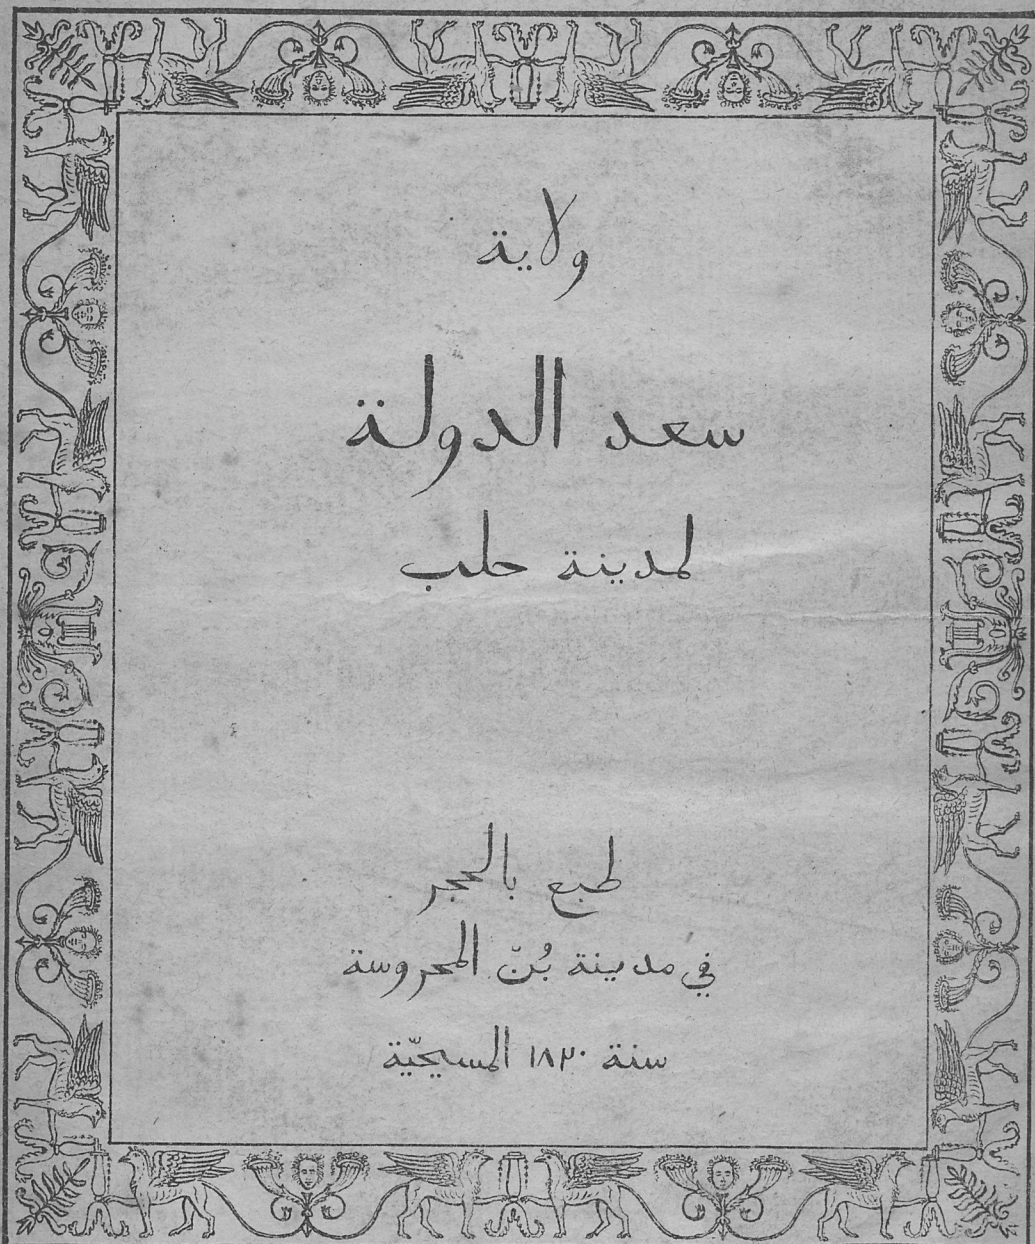 ولاية
سعد الدولة
لمدينة حلب
طبع بالحجر
في مدينة بُنّ المحروسة
سنة ١٨٢٠ المسيحيّة